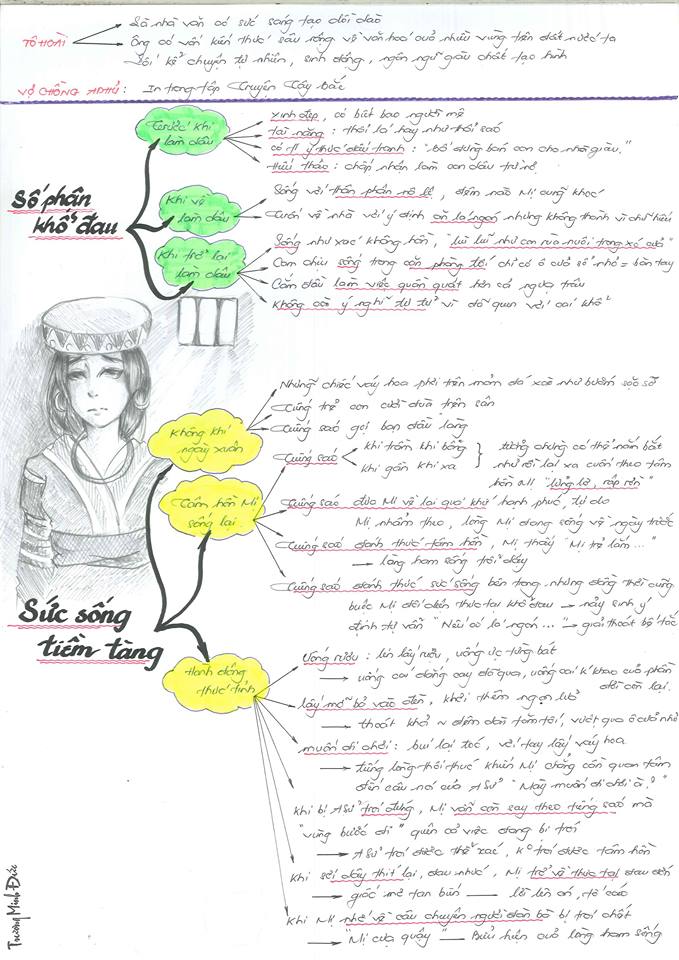 TÔ HOÀI
Là nhà văn có sức sáng tạo dồi dào
Ông có vốn kiến thức sâu rộng về văn hoá của nhiều vùng trên đất nước ta
Lối kể chuyện tự nhiên, sinh động, ngôn ngữ giàu chất tạo hình
VỢ CHỒNG A PHỦ: In trong tập Truyện Tây Bắc
Số phận
khổ đau
Trước khi
làm dâu
xinh đẹp, có biết bao người mê
tài năng: thổi lá hay như thổi sáo
có ý thức đấu tranh: "bố đừng bán con cho nhà giàu."
Hiếu thảo: chấp nhận làm con dâu trừ nợ
Khi về
làm dâu
Sống với thân phận nô lệ, đêm nào Mị cũng khóc
Trốn về nhà với ý định ăn lá ngón nhưng không thành vì chữ hiếu
Khi trở lại
làm dâu
Sống như xác không hồn, "lùi lũi như con rùa nuôi trong xó cửa"
Cam chịu sống trong căn phòng tối chỉ có ô cửa sổ nhỏ = bàn tay
Cắm đầu làm việc quần quật hơn cả ngựa trâu
Không còn ý nghĩ tự tử vì đã quen với cái khổ
Sức sống
tiềm tàng
Không khí
ngày xuân
Những chiếc váy hoa phơi trên mỏm đá xoè như bướm sặc sỡ
Tiếng trẻ con cười đùa trên sân
Tiếng sáo gọi bạn đầu làng
Tâm hồn Mị
sống lại
Tiếng sáo
khi trầm khi bổng
khi gần khi xa
tưởng chừng có thể nắm bắt
như rồi lại xa cuốn theo tâm
hồn Mị "lửng lơ, rập rờn"
Tiếng sáo đưa Mị về lại quá khứ hạnh phúc, tự do
Mị nhẩm theo, lòng Mị đang sống về ngày trước
Tiếng sáo đánh thức tâm hồn, Mị thấy "Mị trẻ lắm..."
→ lòng ham sống trỗi dậy
Tiếng sáo đánh thức sức sống bên trong nhưng đồng thời cũng
buộc Mị đối diện thực tại khổ đau → nảy sinh ý
định tự vẫn "Nếu có lá ngón..." → giải thoát bế tắc
Hành động
thức tỉnh
Uống rượu: lén lấy rượu, uống ực từng bát
→ uống cái đắng cay đã qua, uống cái khao của phần
đời còn lại.
lấy mỡ bỏ vào đèn, khơi thêm ngọn lửa
→ thoát khỏi đêm dài tăm tối, vượt qua ô cửa nhỏ
muốn đi chơi: búi lại tóc, với tay lấy váy hoa
→ tiếng lòng thôi thúc khiến Mị chẳng còn quan tâm
đến câu nói của A Sử "Mày muốn đi chơi à?"
Khi bị A Sử trói đứng, Mị vẫn còn say theo tiếng sáo mà
"vùng bước đi" quên cả việc đang bị trói
→ A Sử trói được thể xác, k° trói được tâm hồn
Khi sợi dây thít lại, đau nhức, Mị trở về thực tại đau đớn
→ giấc mơ tan biến — lời lên án, tố cáo
Khi Mị nhớ về câu chuyện người đàn bà bị trói chết
→ "Mị cựa quậy" — Biểu hiện của lòng ham sống
Trương Minh Đức